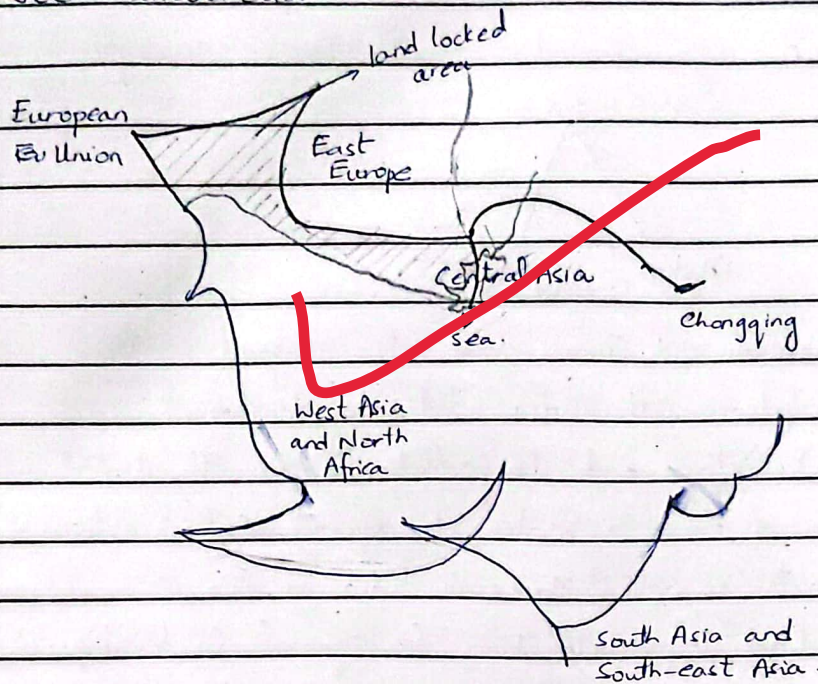 land locked
area
European
Eu Union
East
Europe
Central Asia
Sea.
Chongqing
West Asia
and North
Africa
South Asia and
South-east Asia.